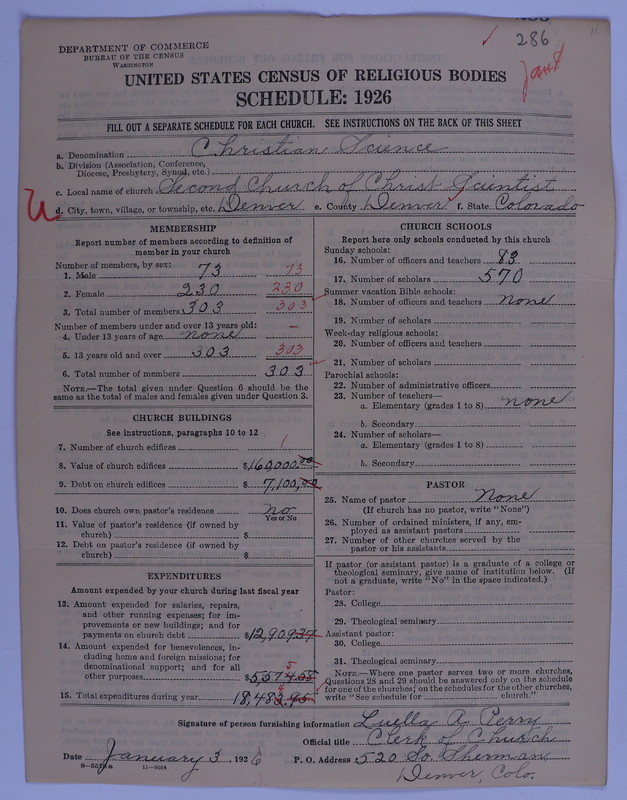 286
DEPARTMENT OF COMMERCE
BUREAU OF THE CENSUS
WASHINGTON
UNITED STATES CENSUS OF RELIGIOUS BODIES
SCHEDULE: 1926
FILL OUT A SEPARATE SCHEDULE FOR EACH CHURCH. SEE INSTRUCTIONS ON THE BACK OF THIS SHEET
a. Denomination Christian Science
b. Division (Association, Conference,
Diocese, Presbytery, Synod, etc.)
c. Local name of church Second Church of Christ Scientist
d. City, town, village, or township, etc. Denver e. County Denver f. State Colorado
MEMBERSHIP
Report number of members according to definition of
member in your church
Number of members, by sex:
1. Male 73 73
2. Female 230 230
3. Total number of members 303 303
Number of members under and over 13 years old:
4. Under 13 years of age none –
5. 13 years old and over 303 303
6. Total number of members 303
NOTE.—The total given under Question 6 should be the
same as the total of males and females given under Question 3.
CHURCH BUILDINGS
See instructions, paragraphs 10 to 12
7. Number of church edifices 1
8. Value of church edifices $160,000.00
9. Debt on church edifices $7,100.00
10. Does church own pastor's residence no
Yes or No
11. Value of pastor's residence (if owned by
church) $
12. Debt on pastor's residence (if owned by
church) $
EXPENDITURES
Amount expended by your church during last fiscal year
13. Amount expended for salaries, repairs,
and other running expenses; for im-
provements or new buildings; and for
payments on church debt $12,909.37
14. Amount expended for benevolences, in-
cluding home and foreign missions; for
denominational support; and for all
other purposes
15. Total expenditures during year
CHURCH SCHOOLS
Report here only schools conducted by this church
Sunday schools:
16. Number of officers and teachers 83
17. Number of scholars 570
Summer vacation Bible schools:
18. Number of officers and teachers none
19. Number of scholars
Week-day religious schools:
20. Number of officers and teachers
21. Number of scholars
Parochial schools:
22. Number of administrative officers
23. Number of teachers—
a. Elementary (grades 1 to 8) none
b. Secondary
24. Number of scholars—
a. Elementary (grades 1 to 8)
b. Secondary
PASTOR
25. Name of pastor None
(If church has no pastor, write "None")
26. Number of ordained ministers, if any, em-
ployed as assistant pastors
27. Number of other churches served by the
pastor or his assistants
If pastor (or assistant pastor) is a graduate of a college or
theological seminary, give name of institution below. (If
not a graduate, write "No" in the space indicated.)
Pastor:
28. College
29. Theological seminary
Assistant pastor:
30. College
31. Theological seminary
NOTE.—Where one pastor serves two or more churches,
Questions 28 and 29 should be answered only on the schedule
for one of the churches; on the schedules for the other churches,
write "See schedule for church."
Signature of person furnishing information Luella A. Perry
Official title Clerk of Church
Date January 3, 1926 P. O. Address 520 So. Sherman
11—9054 Denver, Colo.